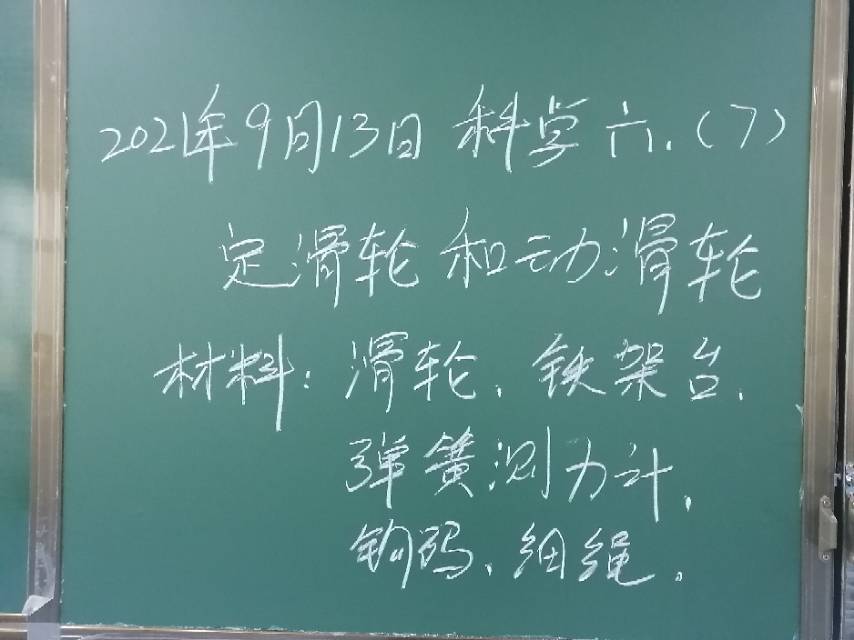 2021年9月13日 科学 六.(7)
定滑轮和动滑轮
材料:滑轮、铁架台、
弹簧测力计、
钩码、细绳。